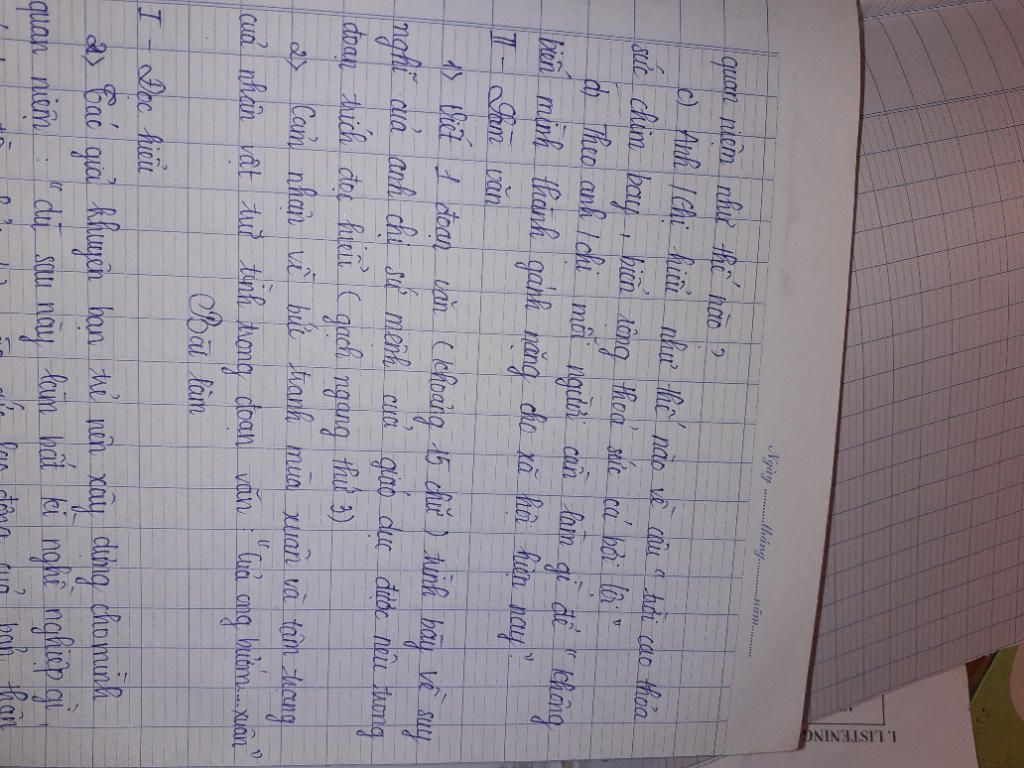 Ngày ........... tháng ........... năm...........
quan niệm như thế nào?
c) Anh / chị hiểu như thế nào về câu "trời cao thỏa
sức chim bay, biển rộng thoả sức cá bơi lội"
d) Theo anh / chị mỗi người cần làm gì để "không
biến mình thành gánh nặng cho xã hội hiện nay"
II - Làm văn
1) Viết 1 đoạn văn (khoảng 15 chữ) trình bày về suy
nghĩ của anh chị sứ mệnh của giáo dục được nêu trong
đoạn trích đọc hiểu (gạch ngang thứ 3)
2) Cảm nhận về bức tranh mùa xuân và tâm trạng
của nhân vật trữ tình trong đoạn văn "Của ong bướm... xuân"
Bài làm
I - Đọc hiểu
2) Tác giả khuyên bạn trẻ nên xây dựng cho mình
quan niệm: "dù sau này làm bất kì nghề nghiệp gì,
I. LISTENING